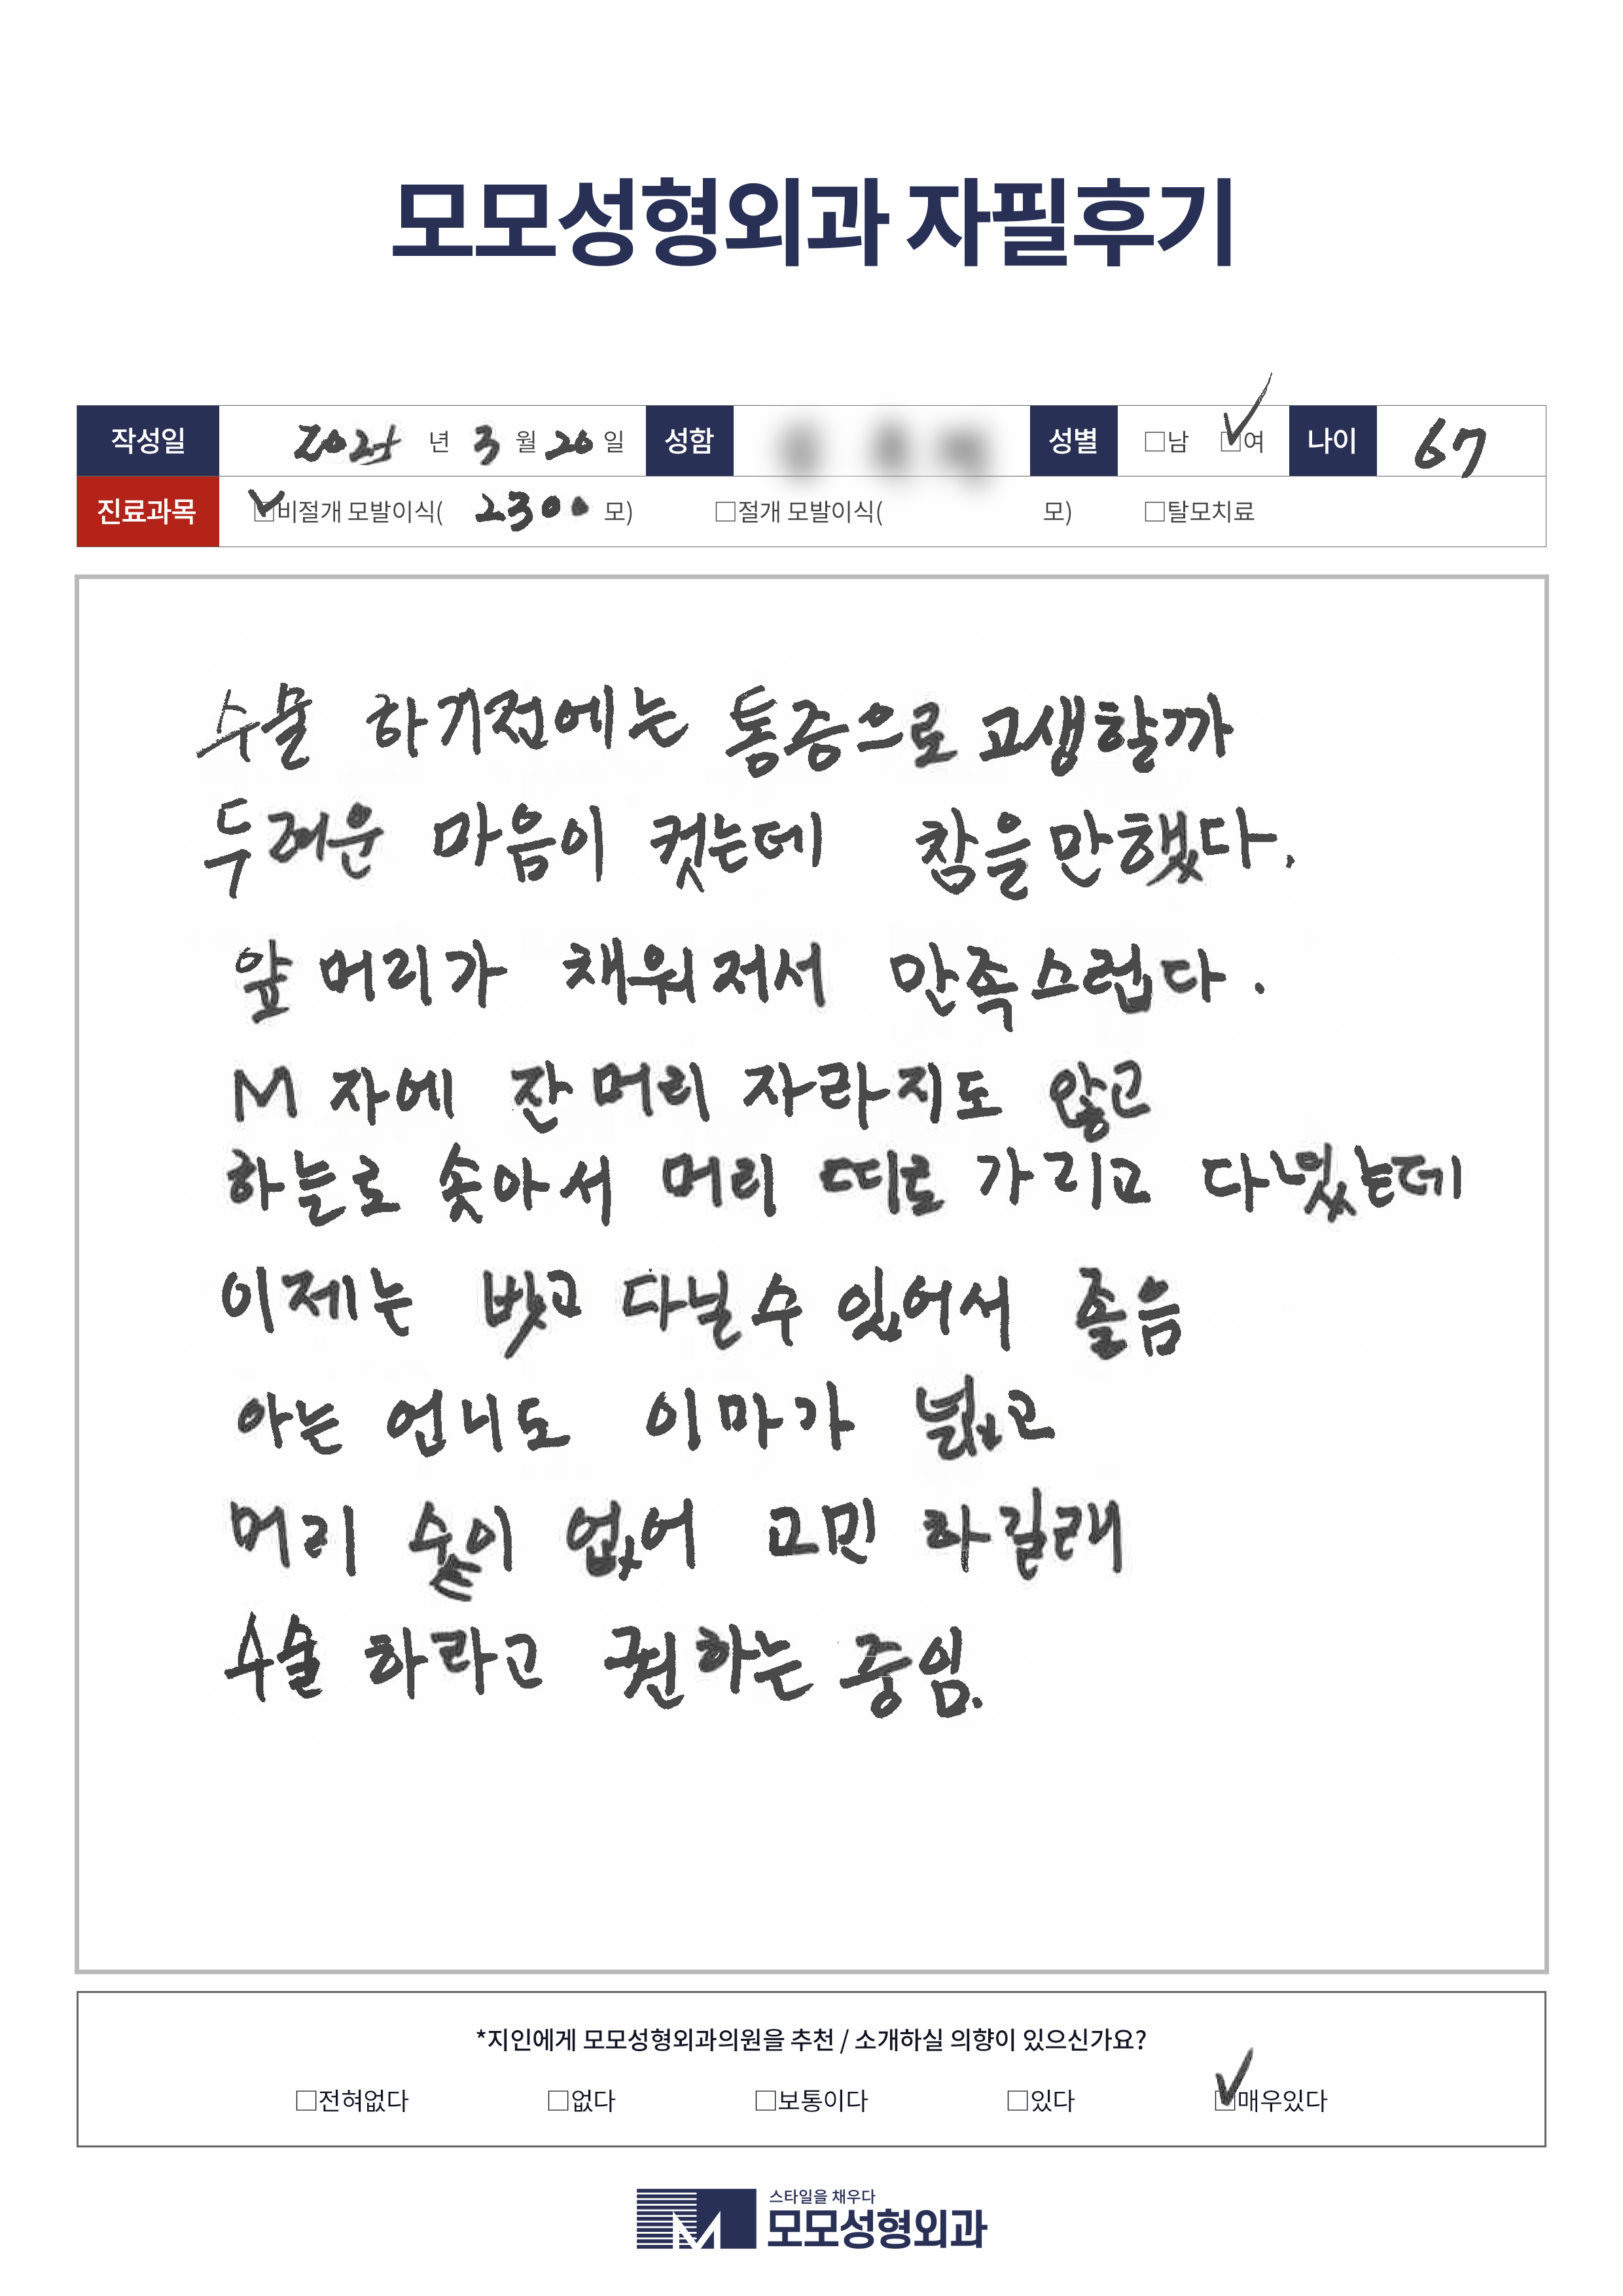 모모성형외과 자필후기
작성일 2025 년 3 월 20 일 성함 성별 □남 ☑여 나이 67
진료과목 ☑비절개 모발이식( 2300 모) □절개 모발이식( 모) □탈모치료
수물 하기전에는 통증으로 고생할까
두려운 마음이 컷는데 참을만했다.
앞머리가 채워저서 만족스럽다.
M자에 잔머리 자라지도 않고
하늘로 솟아서 머리띠로 가리고 다녔는데
이제는 벗고 다닐수 있어서 좋음
아는 언니도 이마가 넓고
머리 숱이 없어 고민 하길래
수술 하라고 권하는 중임.
*지인에게 모모성형외과의원을 추천 / 소개하실 의향이 있으신가요?
□전혀없다 □없다 □보통이다 □있다 ☑매우있다
스타일을 채우다
모모성형외과